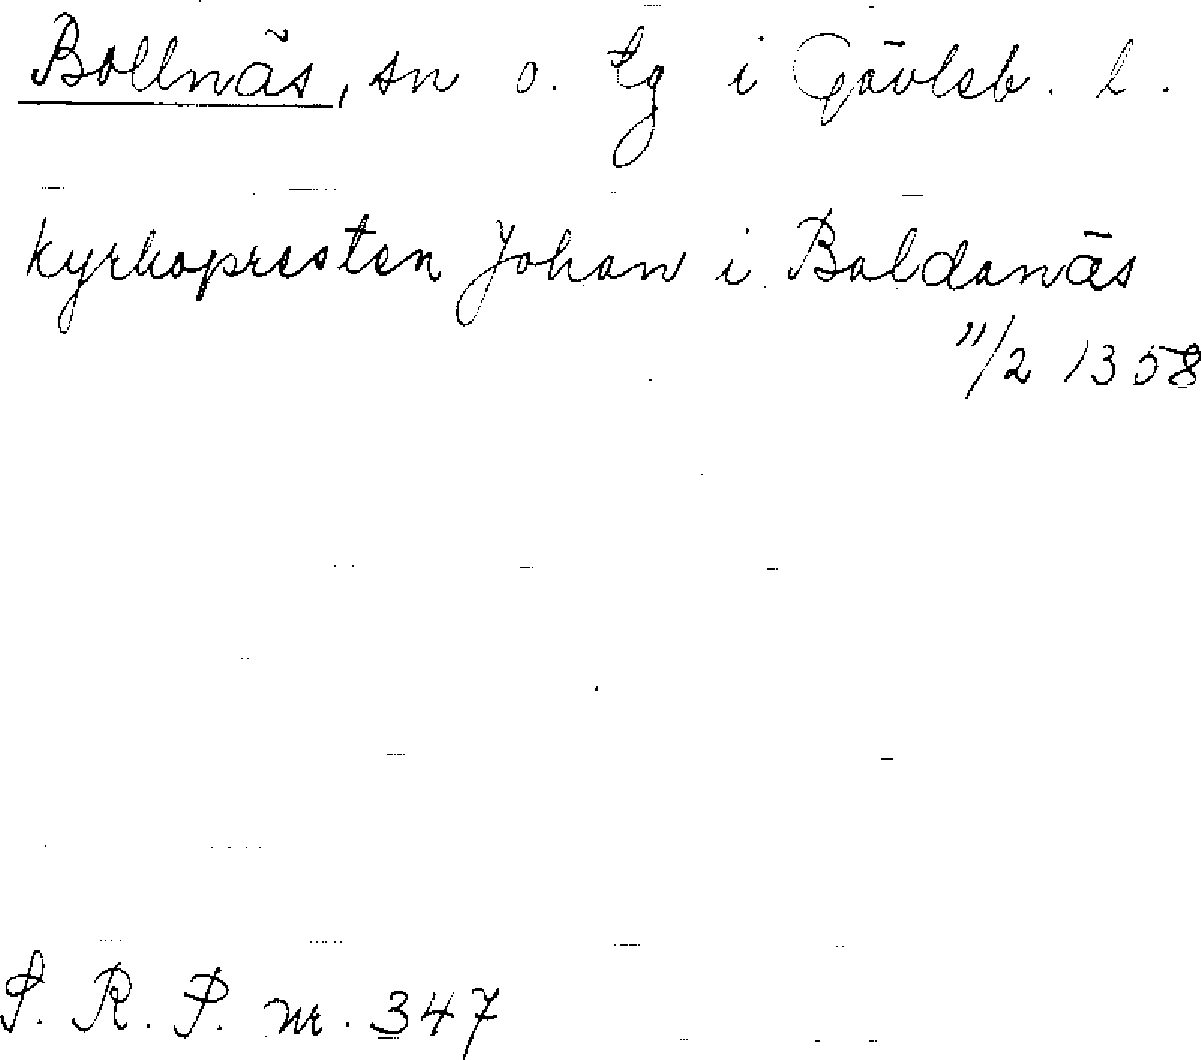 Bollnäs, sn o. tg i Gävleb. l.
kyrkopresten Johan i Boldanäs
11/2 1358
S. R. P. nr. 347